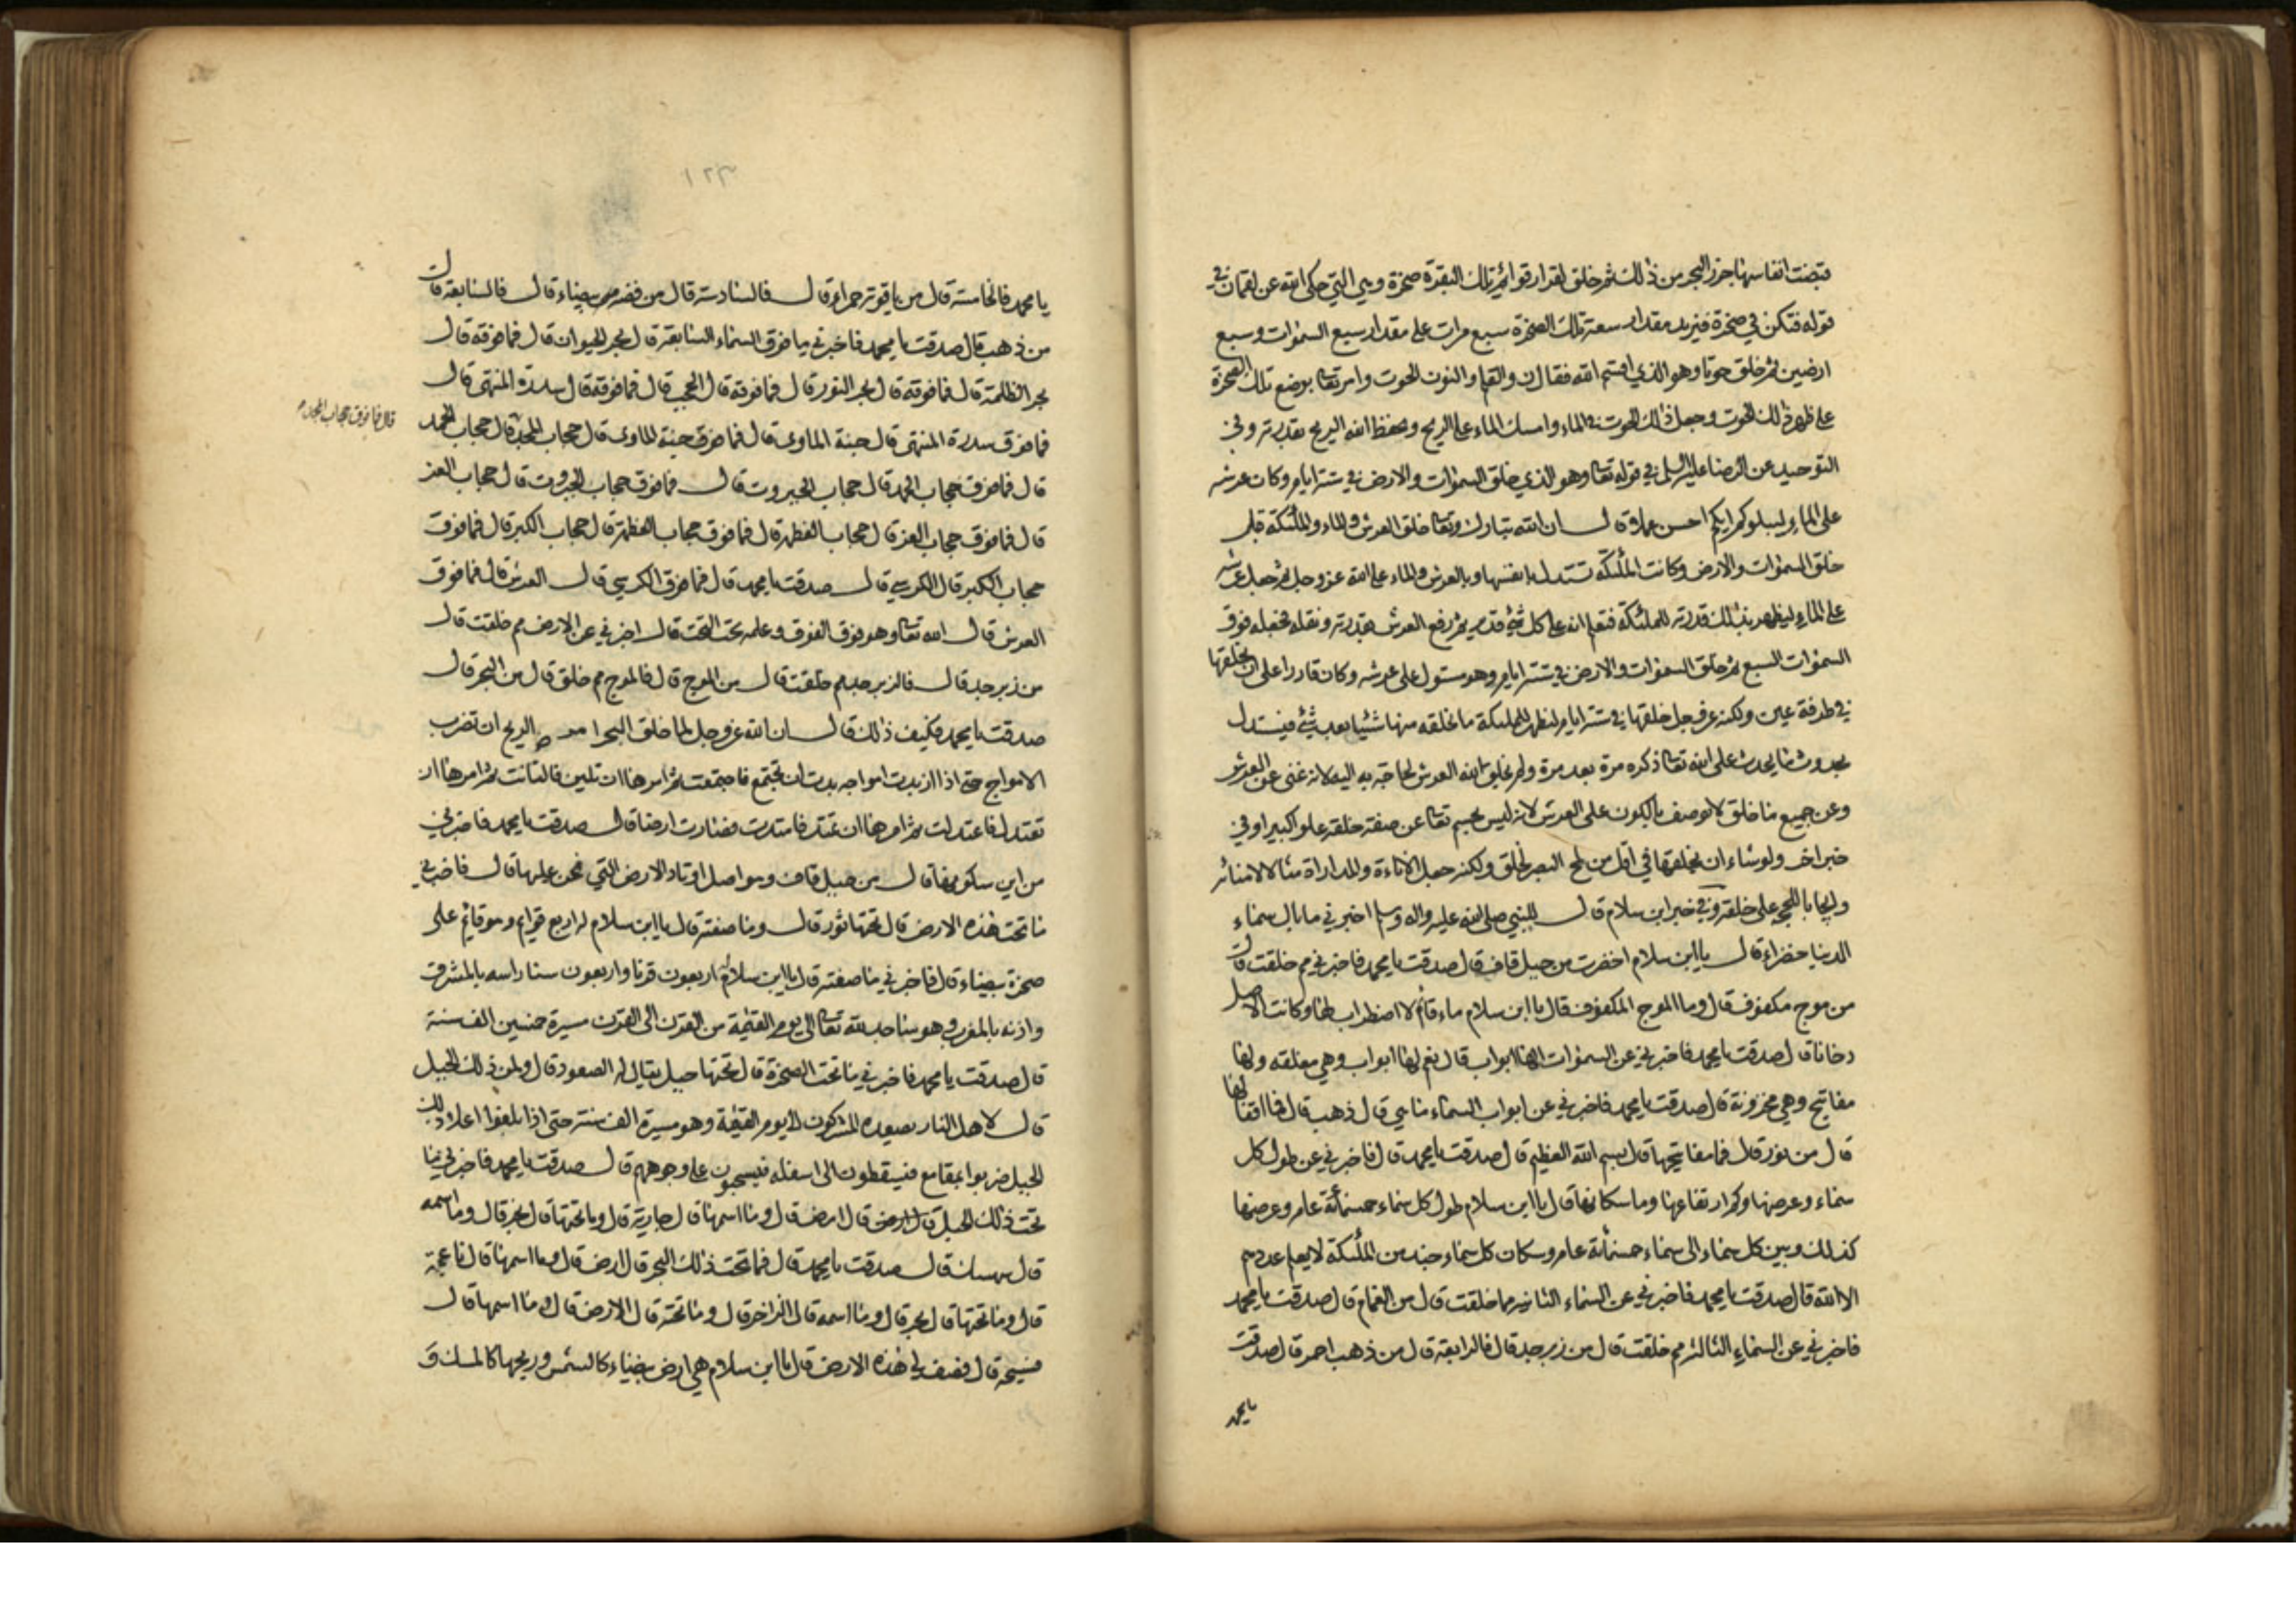 قبضت انفاسها جزر البحر من ذلك ثم خلق لقرار قوائم تلك البقرة صخرة وهي التي حكى الله عن لقمان في
قوله فتكن في صخرة فيزيد مقدار سعة تلك الصخرة سبع مرات على مقدار سبع السموات وسبع
ارضين ثم خلق حوتا وهو الذي اقسم الله فقال ن والقلم والنون الحوت وامر تعالى بوضع تلك الصخرة
على ظهر ذلك الحوت وجعل ذلك الحوت في الماء وامسك الماء على الريح ويحفظ الله الريح بقدرته وفي
التوحيد عن الرضا عليه السلم في قوله تعالى وهو الذي خلق السموات والارض في ستة ايام وكان عرشه
على الماء ليبلوكم ايكم احسن عملا قال ان الله تبارك وتعالى خلق العرش والماء والملئكة قبل
خلق السموات والارض وكانت الملئكة تستدل بانفسها وبالعرش والماء على الله عز وجل ثم جعل عرشه
على الماء ليظهر بذلك قدرته للملئكة فتعلم انه على كل شيء قدير ثم رفع العرش بقدرته ونقله فجعله فوق
السموات السبع ثم خلق السموات والارض في ستة ايام وهو مستول على عرشه وكان قادرا على ان يخلقها
في طرفة عين ولكنه عز وجل خلقها في ستة ايام ليظهر للملئكة ما يخلقه منها شيئا بعد شيء فيستدل
بحدوث ما يحدث على الله تعالى ذكره مرة بعد مرة ولم يخلق الله العرش لحاجة به اليه لانه غني عن العرش
وعن جميع ما خلق لا يوصف بالكون على العرش لانه ليس بجسم تعالى عن صفة خلقه علوا كبيرا وفي
خبر اخر ولو شاء ان يخلقها في اقل من لمح البصر لخلق ولكنه جعل الاناءة والمداراة مثالا لامنائه
وايجابا للحجة على خلقه وفي خبر ابن سلام قال للنبي صلى الله عليه واله وسلم اخبرني ما بال سماء
الدنيا خضراء قال يا ابن سلام اخضرت من جبل قاف قال صدقت يا محمد فاخبرني مم خلقت قال
من موج مكفوف قال وما الموج المكفوف قال يا ابن سلام ماء قائم لا اضطراب لها وكانت الاصل
دخانا قال صدقت يا محمد فاخبرني عن السموات الها ابواب قال نعم لها ابواب وهي مغلقه ولها
مفاتيح وهي مخزونة قال صدقت يا محمد فاخبرني عن ابواب السماء ما هي قال ذهب قال فما اقفالها
قال من نور قال فما مفاتيحها قال بسم الله العظيم قال صدقت يا محمد قال فاخبرني عن طول كل
سماء وعرضها وكم ارتفاعها وما سكانها قال يا ابن سلام طول كل سماء خمسمائة عام وعرضها
كذلك وبين كل سماء الى سماء خمسمائة عام وسكان كل سماء جند من الملئكة لا يعلم عددهم
الا الله قال صدقت يا محمد فاخبرني عن السماء الثانية مما خلقت قال من الغمام قال صدقت يا محمد
فاخبرني عن السماء الثالثة مم خلقت قال من زبرجد قال فالرابعة قال من ذهب احمر قال صدقت
يا محمد
١٢٣
يا محمد فالخامسة قال من ياقوتة حمراء قال فالسادسة قال من فضة بيضاء قال فالسابعة قال
من ذهب قال صدقت يا محمد فاخبرني ما فوق السماء السابعة قال بحر الحيوان قال فما فوقه قال
بحر الظلمة قال فما فوقه قال بحر النور قال فما فوقه قال الحجب قال فما فوقه قال سدرة المنتهى قال
فما فوق سدرة المنتهى قال جنة الماوى قال فما فوق جنة الماوى قال حجاب المجد قال حجاب الحمد
قال فما فوق حجاب المجد
قال فما فوق حجاب الحمد قال حجاب الجبروت قال فما فوق حجاب الجبروت قال حجاب العز
قال فما فوق حجاب العز قال حجاب العظمة قال فما فوق حجاب العظمة قال حجاب الكبر قال فما فوق
حجاب الكبر قال الكرسي قال صدقت يا محمد قال فما فوق الكرسي قال العرش قال فما فوق
العرش قال الله تعالى وهو فوق الفوق وعلمه تحت التحت قال اخبرني عن الارض مم خلقت قال
من زبرجد قال فالزبرجد مم خلقت قال من الموج قال فالموج مم خلق قال من البحر قال
صدقت يا محمد وكيف ذلك قال ان الله عز وجل لما خلق البحر امر الريح ان تضرب
الامواج حتى اذا ازبدت امواجه بدت ان تجتمع فاجتمعت ثم امرها ان تلين فلانت ثم امرها ان
تعتدل فاعتدلت ثم امرها ان تمتد فامتدت فصارت ارضا قال صدقت يا محمد فاخبرني
من اين سكونها قال من جبل قاف وهو اصل اوتاد الارض التي نحن عليها قال فاخبرني
ما تحت هذه الارض قال تحتها ثور قال وما صفته قال يا ابن سلام له اربع قوائم وهو قائم على
صخرة بيضاء قال فاخبرني ما صفته قال يا ابن سلام له اربعون قرنا واربعون سنا راسه بالمشرق
واذنه بالمغرب وهو ساجد لله تعالى الى يوم القيمة من القرن الى القرن مسيرة خمسين الف سنة
قال صدقت يا محمد فاخبرني ما تحت الصخرة قال تحتها جبل يقال له الصعود قال ولمن ذلك الجبل
قال لاهل النار يصعده المشركون الى يوم القيمة وهو مسيرة الف سنة حتى اذا بلغوا اعلا ذلك
الجبل ضربوا بمقامع فيسقطون الى اسفله فيسحبون على وجوههم قال صدقت يا محمد فاخبرني ما
تحت ذلك الجبل قال ارض قال وما اسمها قال جارية قال وما تحتها قال بحر قال وما اسمه
قال سهسك قال صدقت يا محمد قال فما تحت ذلك البحر قال ارض قال وما اسمها قال ناعمة
قال وما تحتها قال بحر قال وما اسمه قال الزاخر قال وما تحته قال الارض قال وما اسمها قال
فسيحة قال فصف لي هذه الارض قال يا ابن سلام هي ارض بيضاء كالشمس وريحها كالمسك و